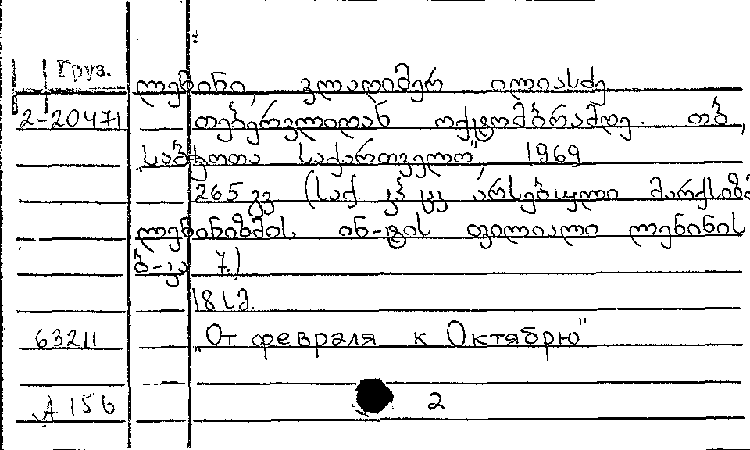 Груз.
ლენინი, ვლადიმერ ილიასძე
2-20471
თებერვლიდან ოქტომბრამდე. თბ.,
„საბჭოთა საქართველო“, 1969
265 გვ (საქ კპ ცკ არსებული მარქსიზმ
ლენინიზმის ინ-ტის ფილიალი ლენინის
ბ-კა 7.)
18 სმ.
63211 „От февраля к Октябрю"
А 156 2